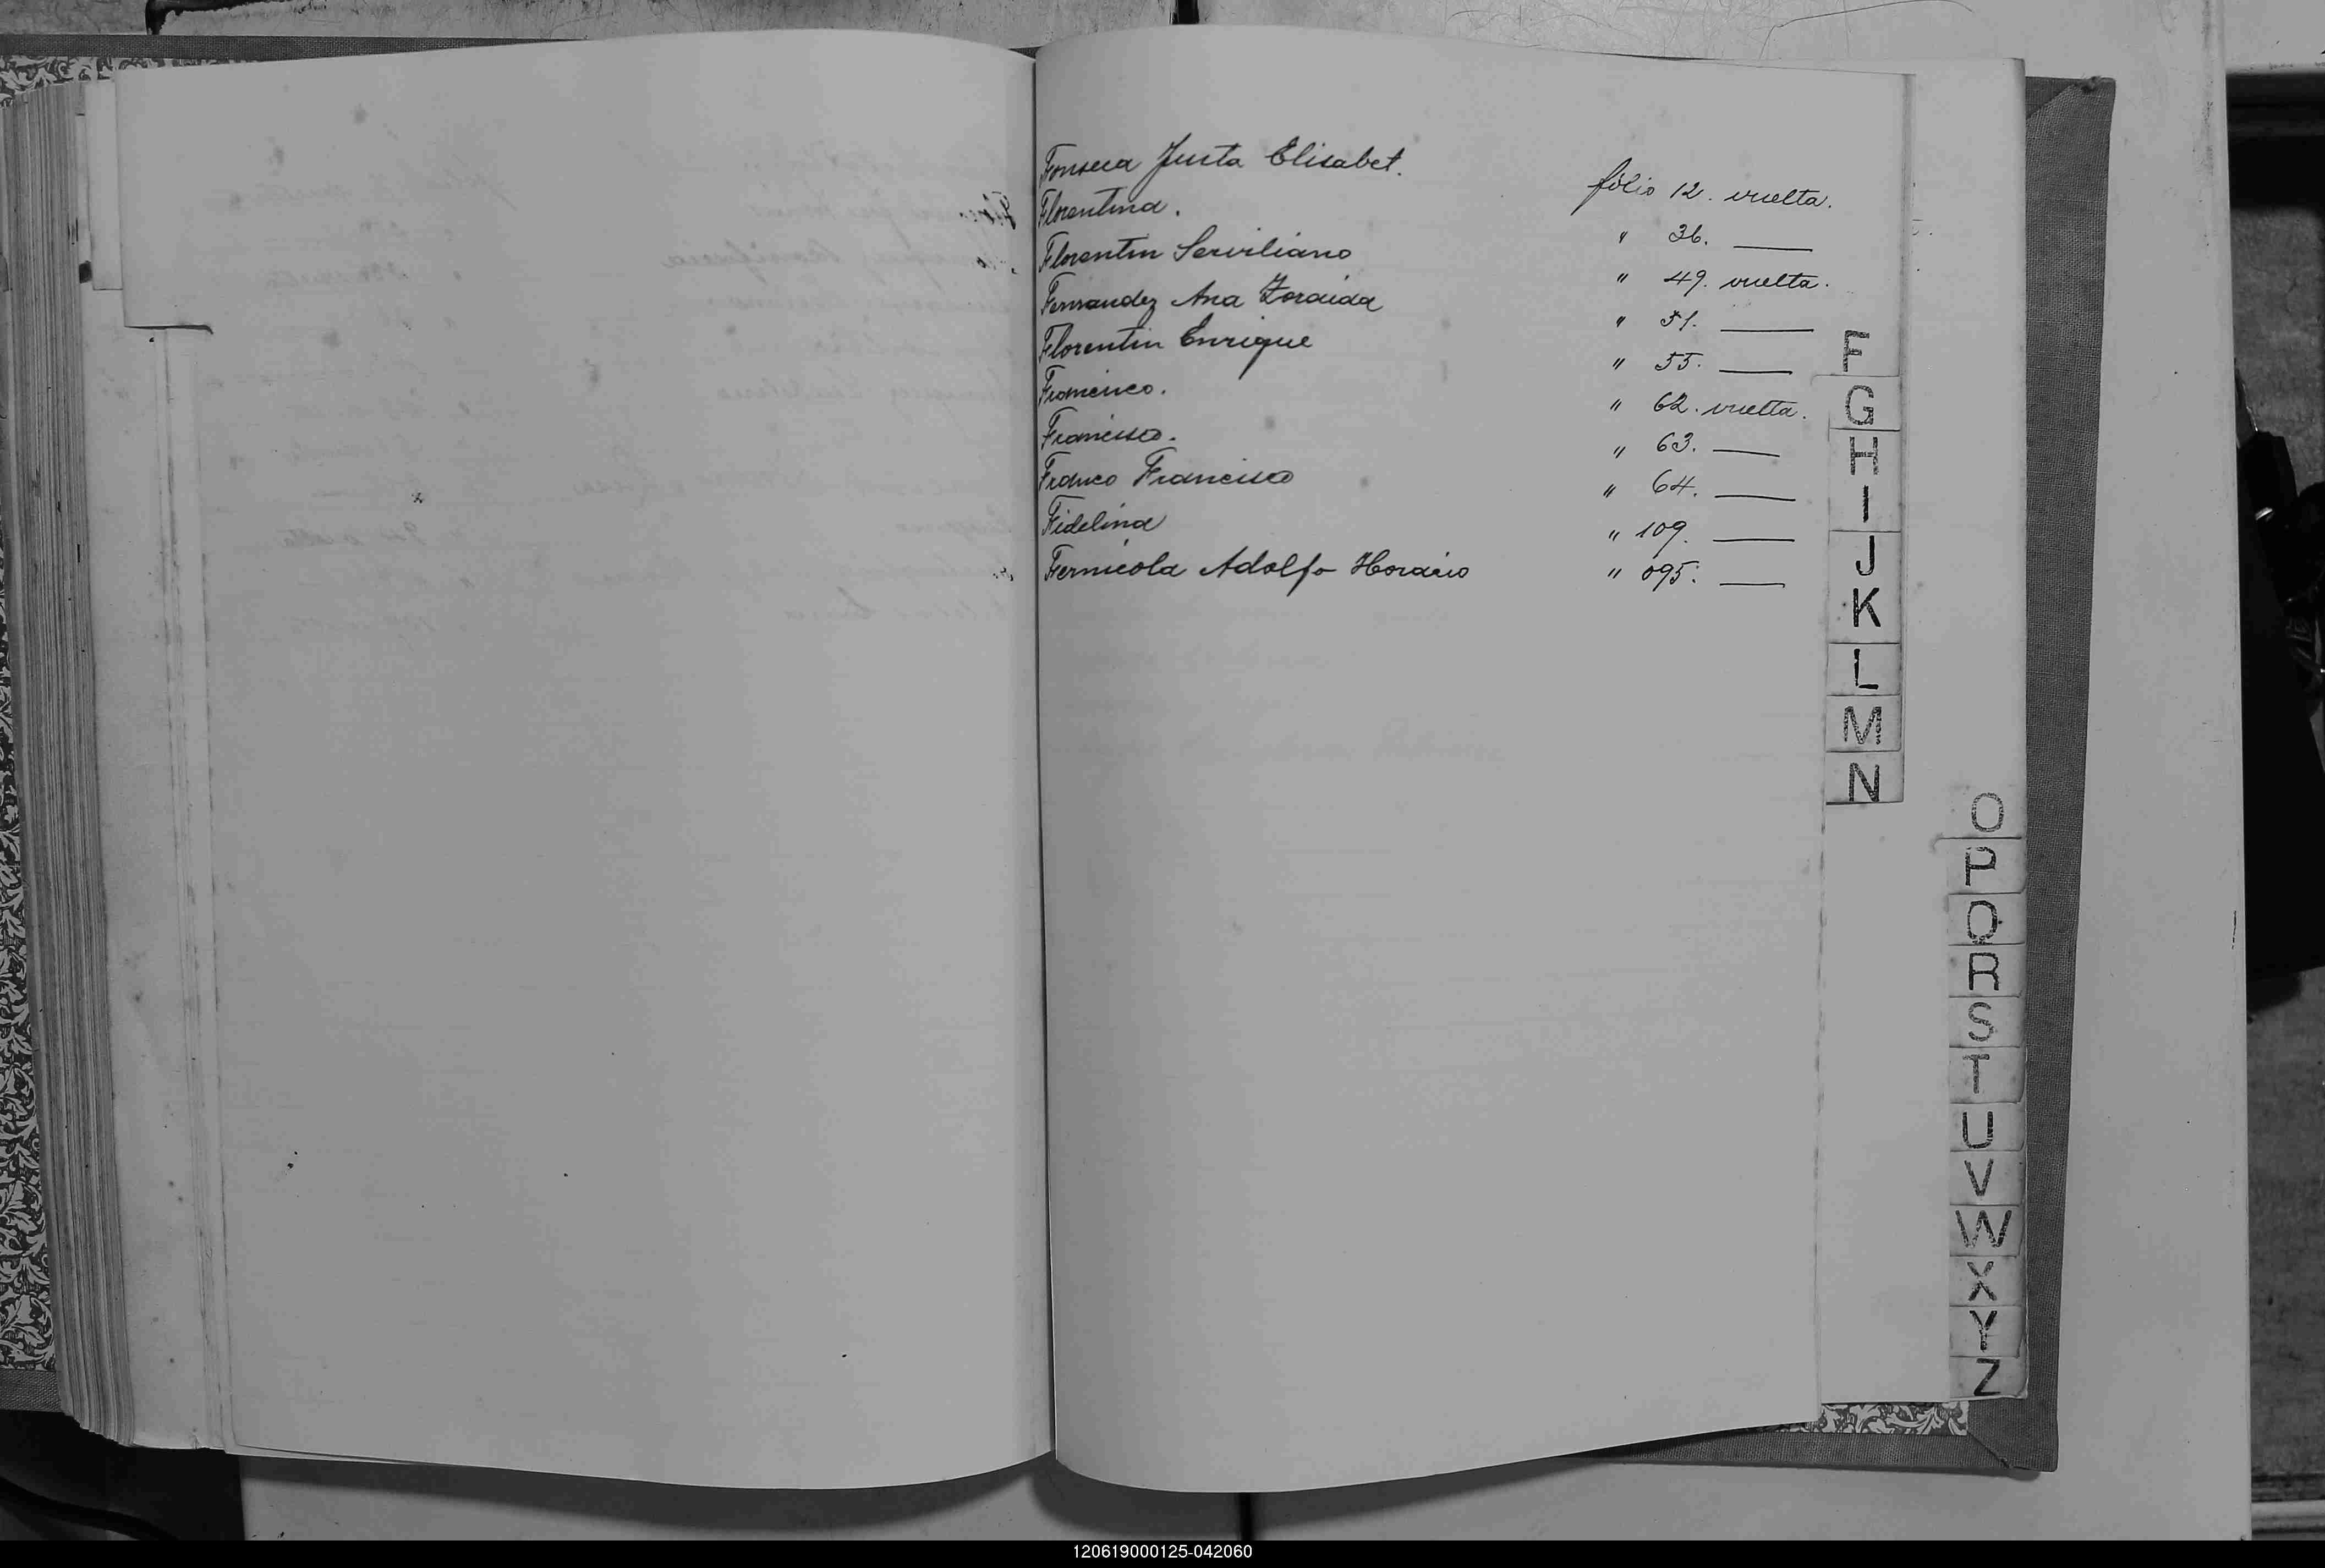 Fonseca Justa Elisabet. folio 12. vuelta.
Florentina. " 36. ——
Florentin Serviliano " 49. vuelta.
Fernandez Ana Zoraida " 51. ——
Florentin Enrique " 55. ——
Francisco. " 62. vuelta.
Francisco. " 63. ——
Franco Francisco " 64. ——
Fidelina " 109. ——
Fernicola Adolfo Horacio " 095. ——
F
G
H
I
J
K
L
M
N
O
P
Q
R
S
T
U
V
W
X
Y
Z
120619000125-042060